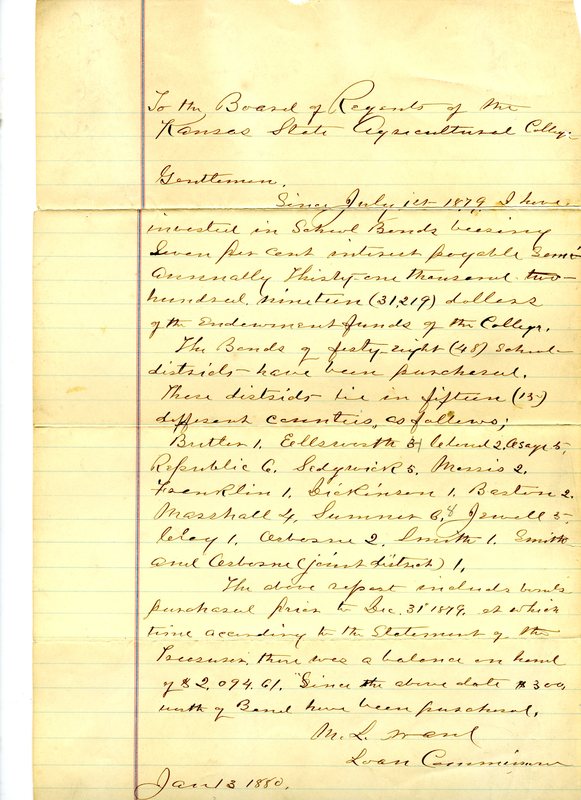 To the Board of Regents of the
Kansas State Agricultural College
Gentlemen,
Since July 1st 1879 I have
invested in School Bonds bearing
Seven per cent interest payable Semi
Annually Thirty-one thousand two
hundred, nineteen (31219) dollars
of the Endowment funds of the College.
The Bonds of forty-eight (48) School
districts have been purchased.
These districts lie in fifteen (15)
different counties, as follows;
Butler 1, Ellsworth Cloud 2, Osage 5,
Republic 6, Sedgwick 5, Morris 2,
Franklin 1, Dickinson 1, Barton 2,
Marshall 4, Sumner Jewell 5
Clay 1, Osborne 2, Smith 1, Smith
and Osborne (joint district) 1,
The above report includes bonds
purchased prior to Dec. 31st 1879, at which
time according to the Statement of the
Treasurer, there was a balance on hand
of $2,094.61. Since the above date $300,
worth of Bond have been purchased.
M. L. Ward
Loan Commissioner
Jan 13 1880.